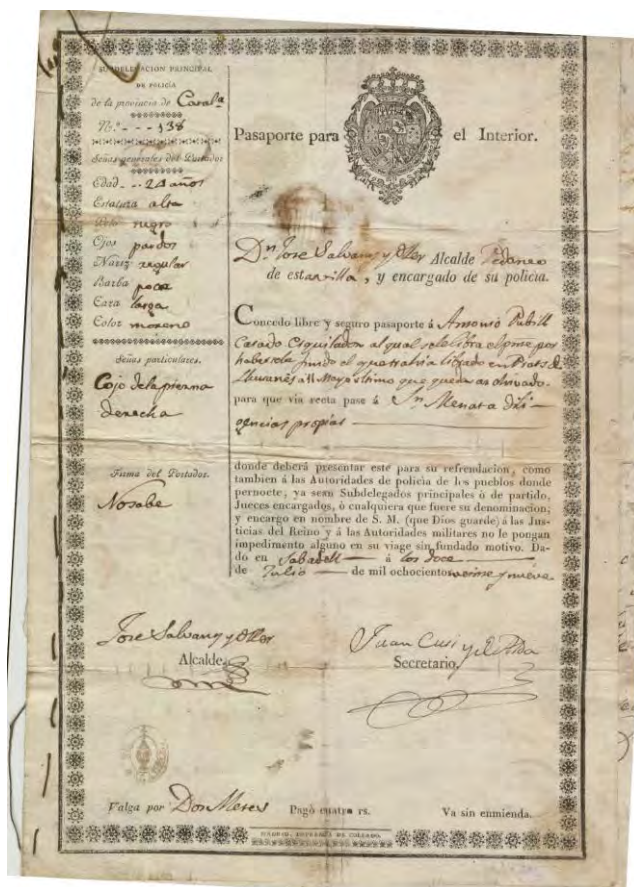 SUBDELEGACION PRINCIPAL
DE POLICÍA
de la provincia de Catalª
N.º - - - 138
Señas generales del Portador
Edad - - 24 años
Estatura alta
Pelo negro
Ojos pardos
Nariz regular
Barba poca
Cara larga
Color moreno
Señas particulares.
Cojo de la pierna
derecha
Firma del Portador.
No sabe
Pasaporte para el Interior.
Dn Jose Salvany y Oller Alcalde Pedaneo
de esta villa, y encargado de su policía.
Concedo libre y seguro pasaporte á Antonio Pubill
Casado Esquilador al qual se le libra el pnte por
haber finido el que trahia librado en Prats de
Llusanés a 11 Mayo ultimo que queda archivado.
para que via recta pase á Sn Menat a dili-
gencias propias
donde deberá presentar este para su refrendacion, como
tambien á las Autoridades de policía de los pueblos donde
pernocte, ya sean Subdelegados principales ó de partido,
Jueces encargados, ó cualquiera que fuere su denominacion;
y encargo en nombre de S. M. (que Dios guarde) á las Jus-
ticias del Reino y á las Autoridades militares no le pongan
impedimento alguno en su viage sin fundado motivo. Da-
do en Sabadell á los doce
de Julio de mil ochocientos veinte y nueve
Jose Salvany y Oller
Alcalde
Juan Cusi y de
Secretario,
Valga por Dos Meses
Pagó cuatro rs.
Va sin enmienda.
MADRID, IMPRENTA DE COLLADO.